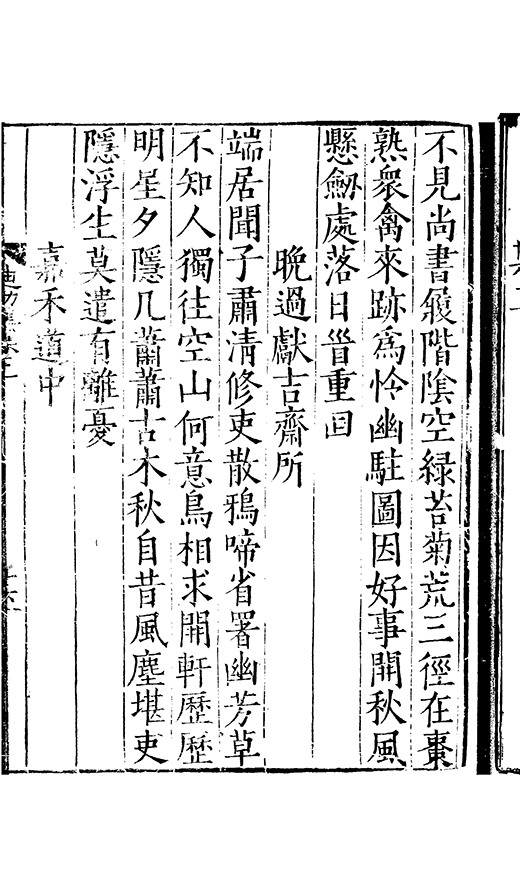 不見尚書履階陰空綠苔菊荒三徑在棗
熟衆禽來跡爲怜幽駐圖因好事開秋風
懸劒處落日首重回
晚過獻吉齋所
端居聞子肅清修吏散鴉啼省署幽芳草
不知人獨往空山何意鳥相求開軒歷歷
明星夕隱几蕭蕭古木秋自昔風塵堪吏
隱浮生莫遣有離憂
嘉禾道中